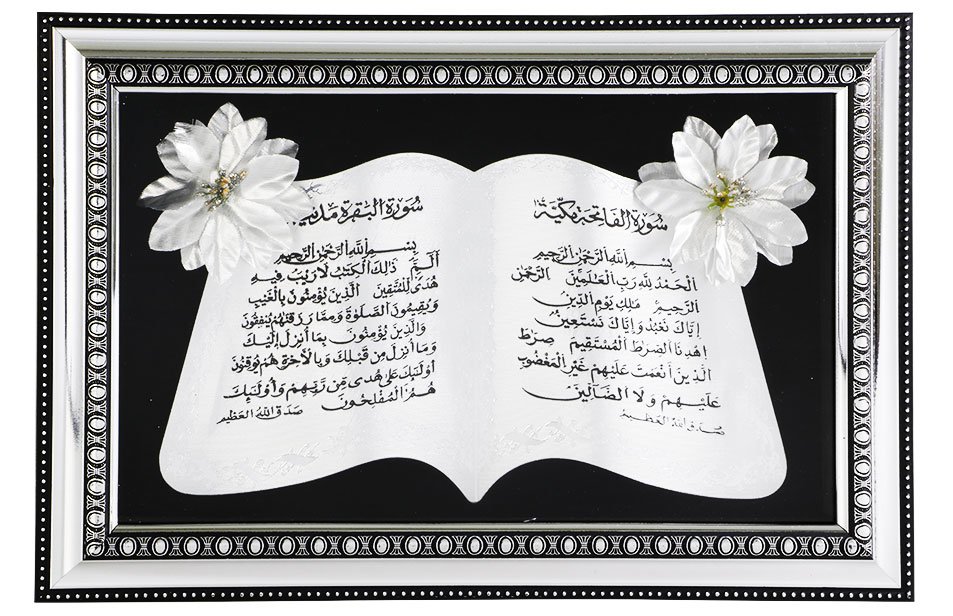 سورة الفاتحة مكية
بسم الله الرحمن الرحيم
الحمد لله رب العالمين الرحمن
الرحيم مالك يوم الدين
إياك نعبد وإياك نستعين
اهدنا الصراط المستقيم صراط
الذين أنعمت عليهم غير المغضوب
عليهم ولا الضالين
صدق الله العظيم
سورة البقرة
بسم الله الرحمن الرحيم
الم ذلك الكتب لا ريب فيه
هدى للمتقين الذين يؤمنون بالغيب
ويقيمون الصلوة ومما رزقنهم ينفقون
والذين يؤمنون بما أنزل إليك
وما أنزل من قبلك وبالآخرة هم يوقنون
أولئك على هدى من ربهم وأولئك
هم المفلحون صدق الله العظيم